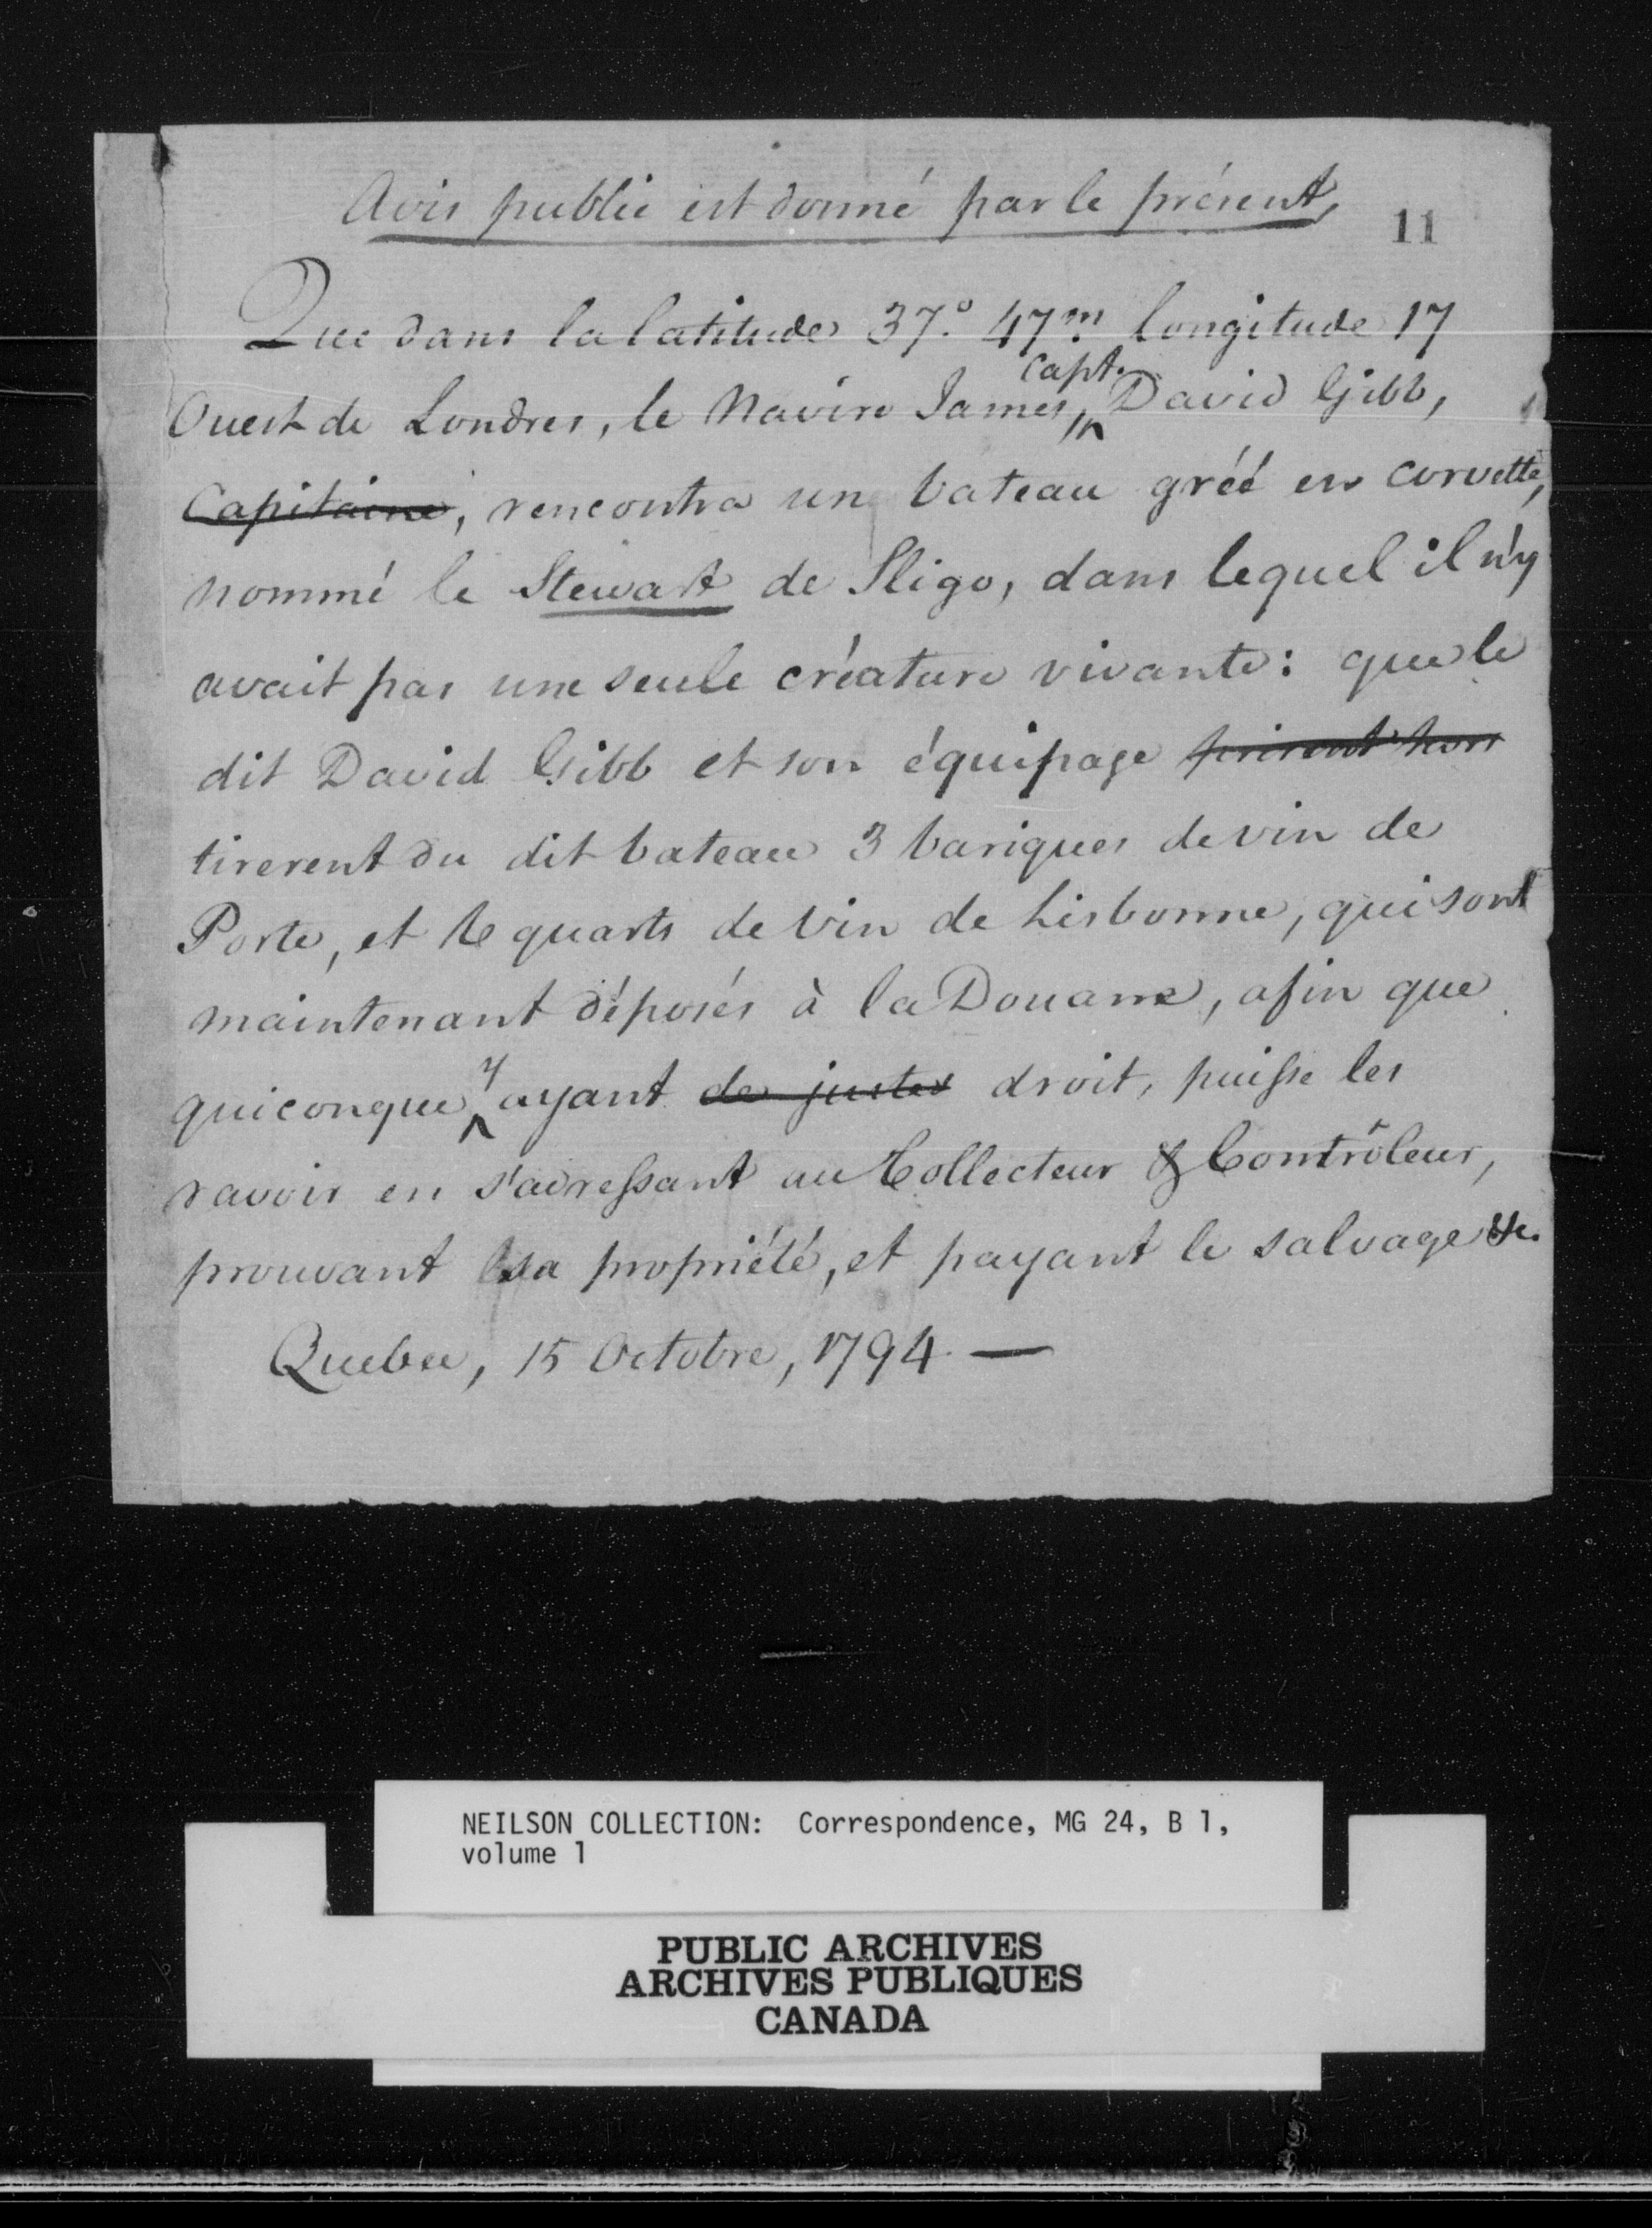 Avis public est donné par le présent,
11
Que dans la latitude 37.° 47.m longitude 17
Ouest de Londres, le Navire James, Capt. David Gibb,
Capitaine, rencontra un bateau gréé en corvette,
nommé le Stewart de Sligo, dans lequel il n'y
avait pas une seule créature vivante: que le
dit David Gibb et son équipage prirent hors
tirerent du dit bateau 3 bariques de vin de
Porte, et quarts de Vin de Lisbonne, qui sont
maintenant déposés à la Douane, afin que
quiconque y ayant de justes droit, puisse les
ravoir en s'adressant au Collecteur & Contrôleur,
prouvant sa propriété, et payant le salvage &c.
Quebec, 15 Octobre, 1794 —
NEILSON COLLECTION: Correspondence, MG 24, B 1,
volume 1
PUBLIC ARCHIVES
ARCHIVES PUBLIQUES
CANADA